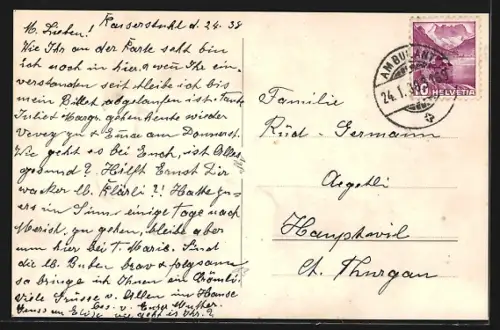 Kaiserstuhl d. 24. 38
M. Lieben!
Wie Ihr an der Karte seht bin
ich noch in hier & wenn Ihr ein-
verstanden seit bleibe ich bis
mein Billet abgelaufen ist. Tante
Julie & Marg. gehen heute wieder
Vevey zu & Emma am Donnerst.
Wie geht es bei Euch, ist Alles
gesund? Hilft Ernst Dir
wacker lb. Klärli?! Hatte zu-
erst im Sinn einige Tage nach
zu gehen, bleibe aber
nun hier bei T. Marie. Sind
die lb. Buben brav & folgsam
so bringe ich Ihnen ein
Viele Grüsse v. Allen im Hause
bes. v. Eurer Mutter.
Gruss an wie geht es Ihr?
AMBULANT
24.1.38
10 HELVETIA
Familie
Rüd-Germann
Aegetli
Hauptwil
Ct. Thurgau